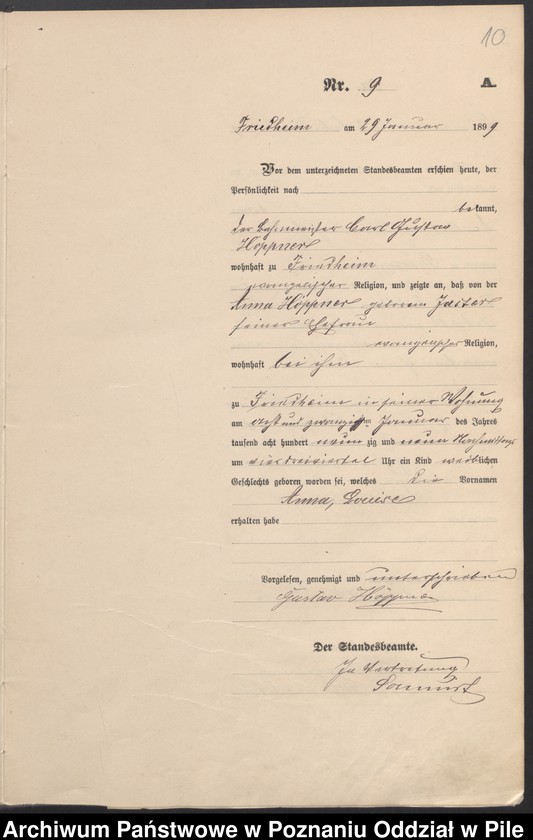 10
Nr. 9 A.
Friedheim am 29 Januar 1899
Vor dem unterzeichneten Standesbeamten erschien heute, der
Persönlichkeit nach
bekannt,
der Bahnmeister Carl Gustav
Höppner
wohnhaft zu Friedheim
evangelischer Religion, und zeigte an, daß von der
Anna Höppner geborenen Jaster
seiner Ehefrau
evangelischer Religion,
wohnhaft bei ihm
zu Friedheim in seiner Wohnung
am acht und zwanzigsten Januar des Jahres
tausend acht hundert neun zig und neun Nachmittags
um vierdreiviertel Uhr ein Kind weiblichen
Geschlechts geboren worden sei, welches die Vornamen
Anna, Louise
erhalten habe
Vorgelesen, genehmigt und unterschrieben
Gustav Höppner
Der Standesbeamte.
In Vertretung
Archiwum Państwowe w Poznaniu Oddział w Pile